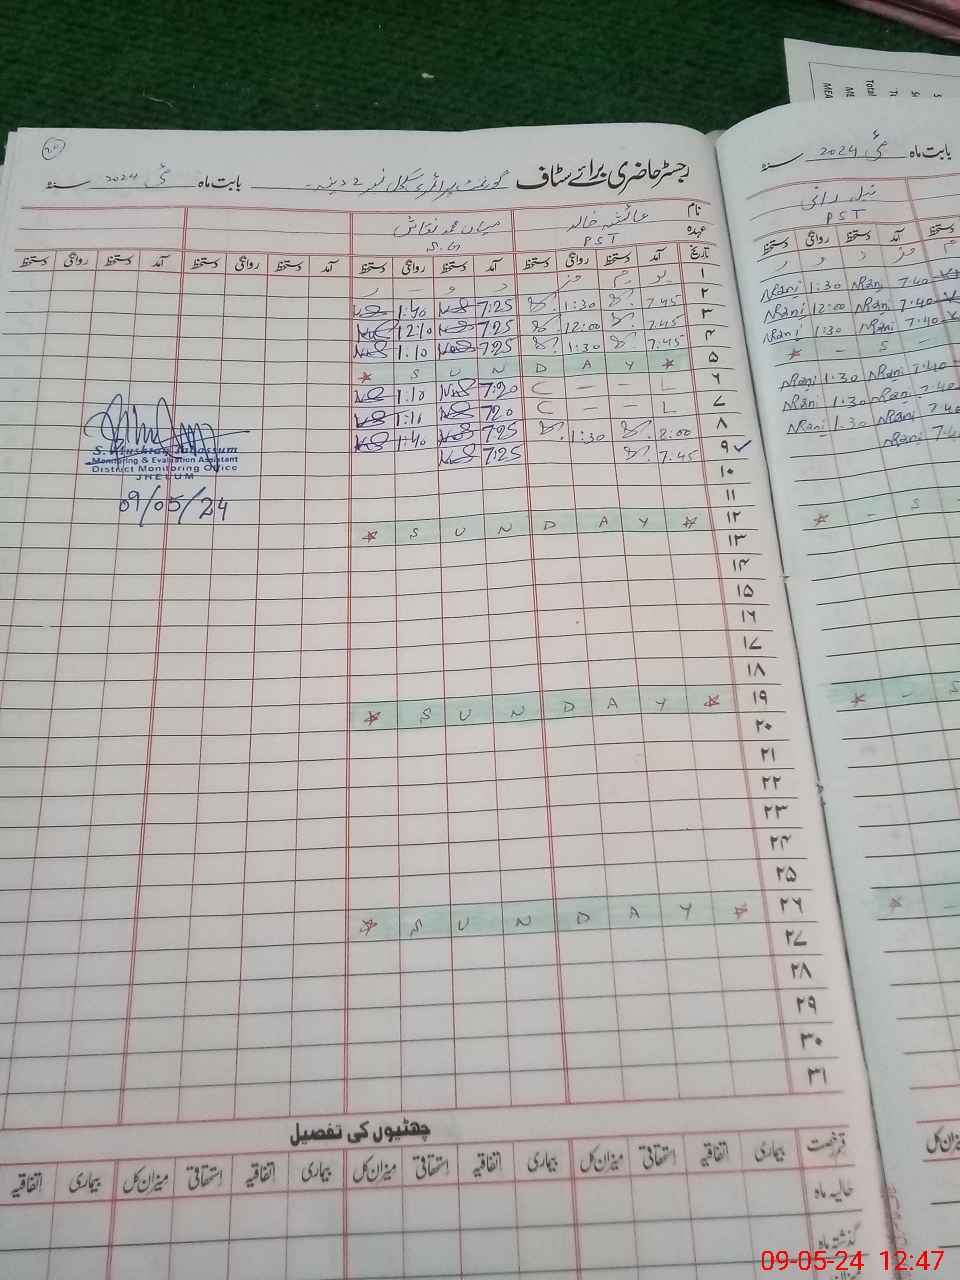 رجسٹر حاضری برائے سٹاف گورنمنٹ پرائمری سکول نمبر 2 دینہ بابت ماہ مئی 2024 سنہ
نام عائشہ خالد
عہدہ PST
تاریخ آمد دستخط روانگی دستخط آمد دستخط روانگی دستخط آمد دستخط روانگی دستخط آمد دستخط روانگی دستخط
۱ یو م مز د و ر
۲ 7:45 1:30 7:25 1:40
۳ 7:45 12:00 7:25 12:10
۴ 7:45 1:30 7:25 1:10
۵ S U N D A Y
۶ L — — C 7:20 1:10
۷ L — — C 7:20 1:10
۸ 8:00 1:30 7:25 1:40
۹ 7:45 7:25
۱۰
۱۱
۱۲ S U N D A Y
۱۳
۱۴
۱۵
۱۶
۱۷
۱۸
۱۹ S U N D A Y
۲۰
۲۱
۲۲
۲۳
۲۴
۲۵
۲۶ S U N D A Y
۲۷
۲۸
۲۹
۳۰
۳۱
Monitoring & Evaluation Assistant
District Monitoring Office
JHELUM
09/05/24
چھٹیوں کی تفصیل
قسم رخصت بیماری اتفاقیہ استحقاقی میزان کل بیماری اتفاقیہ استحقاقی میزان کل بیماری اتفاقیہ استحقاقی میزان کل بیماری اتفاقیہ
حالیہ ماہ
گذشتہ ماہ
بابت ماہ مئی 2024 سنہ
PST
آمد دستخط روانگی دستخط
7:40 NRani 1:30 NRani
7:40 NRani 12:00 NRani
7:40 NRani 1:30 NRani
7:40 NRani 1:30 NRani
7:40 NRani 1:30 NRani
7:40 NRani 1:30 NRani
7:40 NRani
Total
09-05-24 12:47